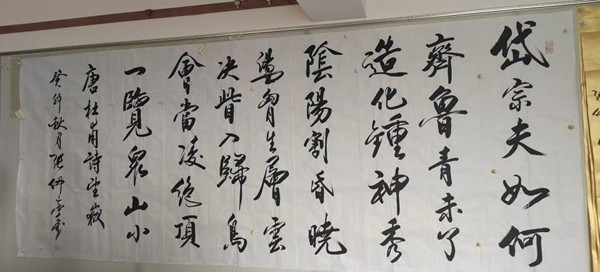 岱宗夫如何
齊魯青未了
造化鍾神秀
陰陽割昏曉
盪胷生層雲
决眥入歸鳥
會當凌絶頂
一覽衆山小
唐杜甫詩望嶽
癸卯秋月張